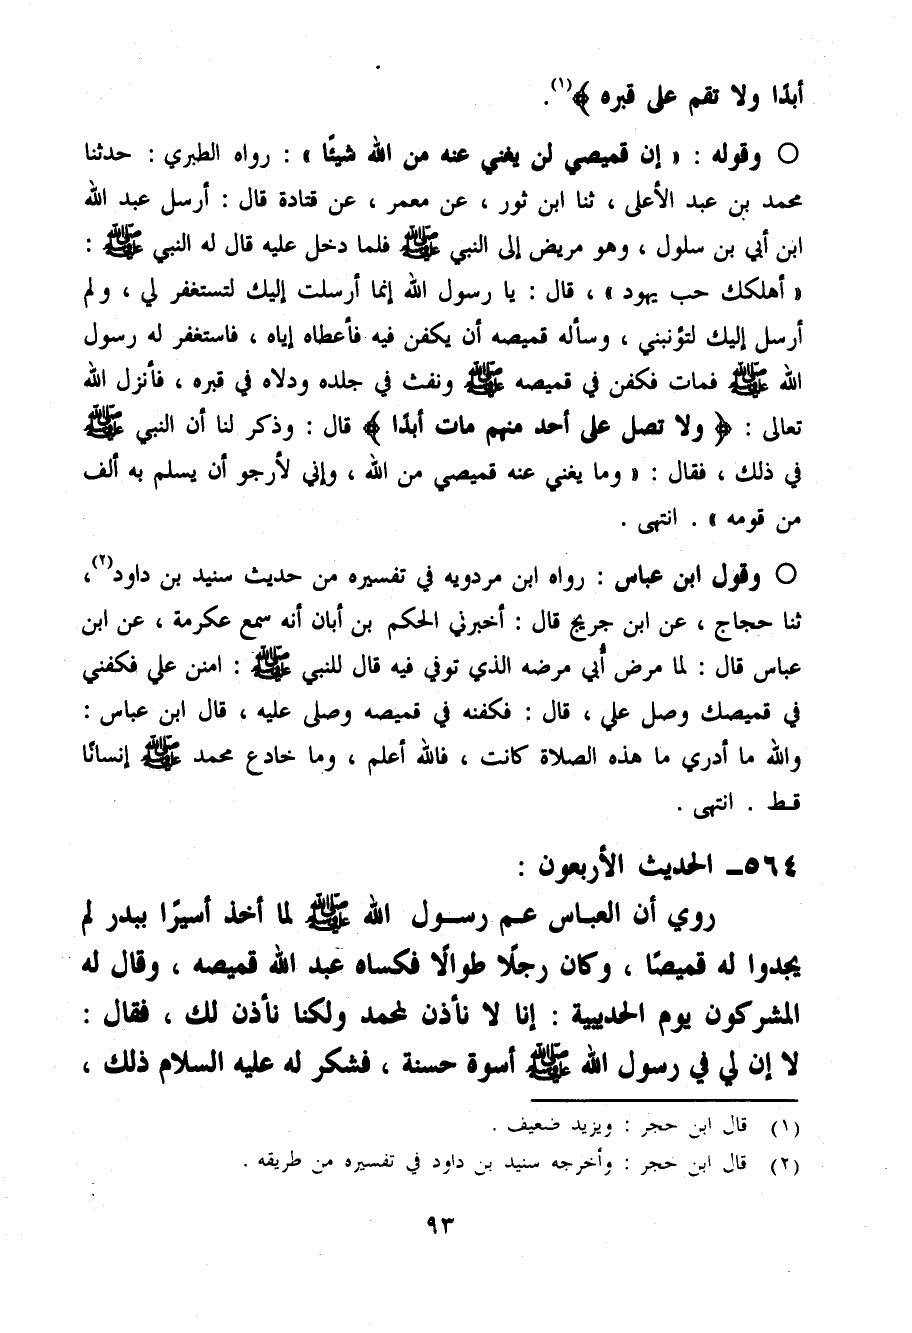 أبدًا ولا تقم على قبره ﴾(١).
○ وقوله : « إن قميصي لن يغني عنه من الله شيئًا » : رواه الطبري : حدثنا
محمد بن عبد الأعلى ، ثنا ابن ثور ، عن معمر ، عن قتادة قال : أرسل عبد الله
ابن أبي بن سلول ، وهو مريض إلى النبي ﷺ فلما دخل عليه قال له النبي ﷺ :
« أهلكك حب يهود » ، قال : يا رسول الله إنما أرسلت إليك لتستغفر لي ، ولم
أرسل إليك لتؤنبني ، وسأله قميصه أن يكفن فيه فأعطاه إياه ، فاستغفر له رسول
الله ﷺ فمات فكفن في قميصه ﷺ ونفث في جلده ودلاه في قبره ، فأنزل الله
تعالى : ﴿ ولا تصل على أحد منهم مات أبدًا ﴾ قال : وذكر لنا أن النبي ﷺ
في ذلك ، فقال : « وما يغني عنه قميصي من الله ، وإني لأرجو أن يسلم به ألف
من قومه » . انتهى .
○ وقول ابن عباس : رواه ابن مردويه في تفسيره من حديث سنيد بن داود(٢)،
ثنا حجاج ، عن ابن جريج قال : أخبرني الحكم بن أبان أنه سمع عكرمة ، عن ابن
عباس قال : لما مرض أُبي مرضه الذي توفي فيه قال للنبي ﷺ : امنن علي فكفني
في قميصك وصل علي ، قال : فكفنه في قميصه وصلى عليه ، قال ابن عباس :
والله ما أدري ما هذه الصلاة كانت ، فالله أعلم ، وما خادع محمد ﷺ إنسانًا
قـط . انتهى .
٥٦٤ـ الحديث الأربعون :
روي أن العبـاس عـم رسـول الله ﷺ لما أخذ أسيرًا ببدر لم
يجدوا له قميصًا ، وكان رجلًا طوالًا فكساه عبد الله قميصه ، وقال له
المشركون يوم الحديبية : إنا لا نأذن لمحمد ولكنا نأذن لك ، فقال :
لا إن لي في رسول الله ﷺ أسوة حسنة ، فشكر له عليه السلام ذلك ،
(١) قال ابن حجر : ويزيد ضعيف .
(٢) قال ابن حجر : وأخرجه سنيد بن داود في تفسيره من طريقه .
٩٣